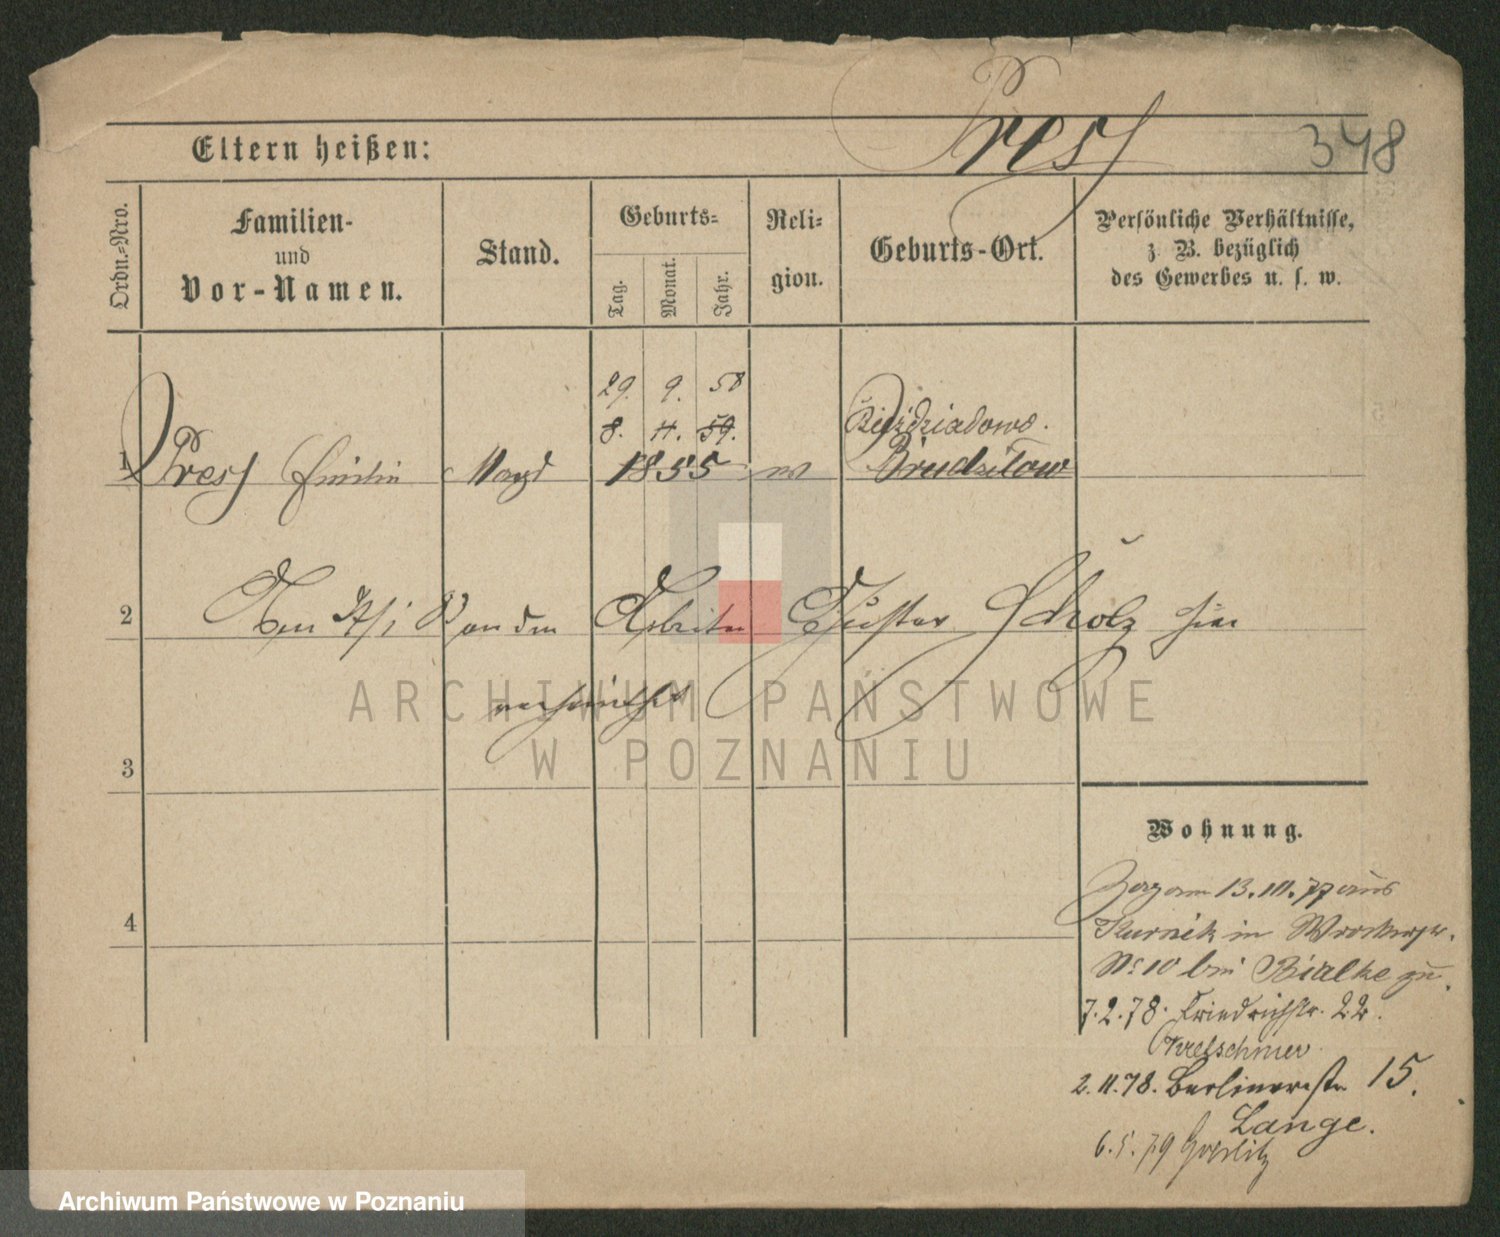 Press
348
Eltern heißen:
Ordn.-Nro.
Familien-
und
Vor-Namen.
Stand.
Geburts-
Tag.
Monat.
Jahr.
Reli-
gion.
Geburts-Ort.
Persönliche Verhältnisse,
z. B. bezüglich
des Gewerbes u. s. w.
29. 9. 58
8. 11. 59.
1 Press Emilie Magd 1855
2 an den Arbeiter Gustav Scholz hier
verheirathet
3
4
Wohnung.
Zog am 13. 10. 77 aus
Kurnik in
No 10 bei Bialke zu.
7.2.78. Friedrichstr. 22.
Kretschmer
2.11.78. Berlinerstr 15.
Lange.
6.5.79 Goerlitz
ARCHIWUM PAŃSTWOWE
W POZNANIU
Archiwum Państwowe w Poznaniu